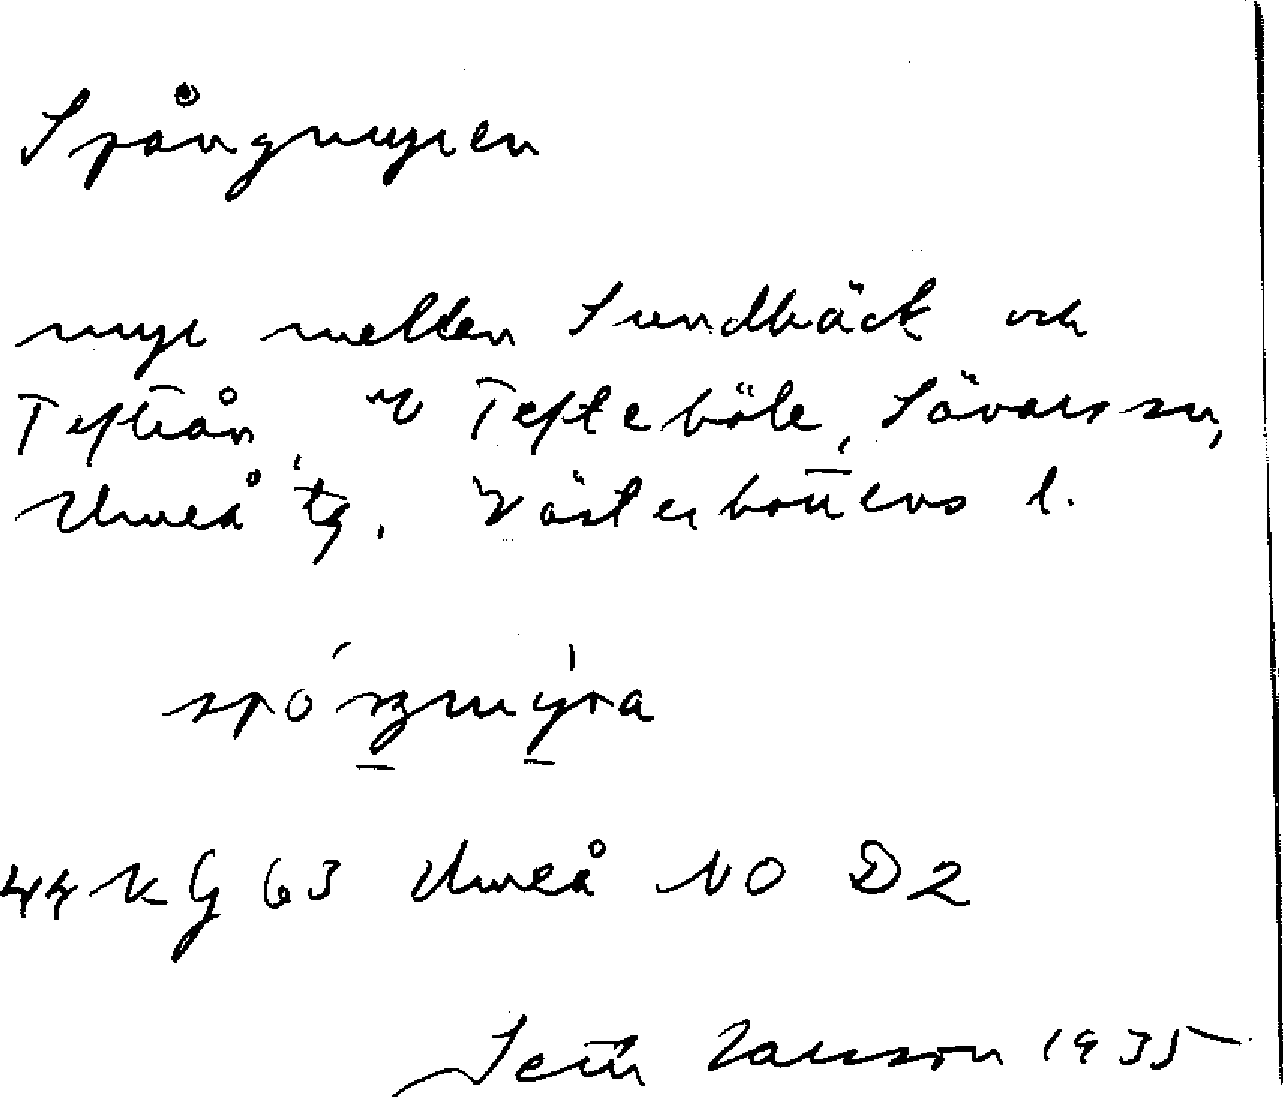 Spångmyren
myr mellan Sundbäck och
Tefteån, V Tefteböle, Sävars sn,
Umeå tg. Västerbottens l.
spóŋmýra
44 KG 63 Umeå NO D2
Seth Larsson 1935